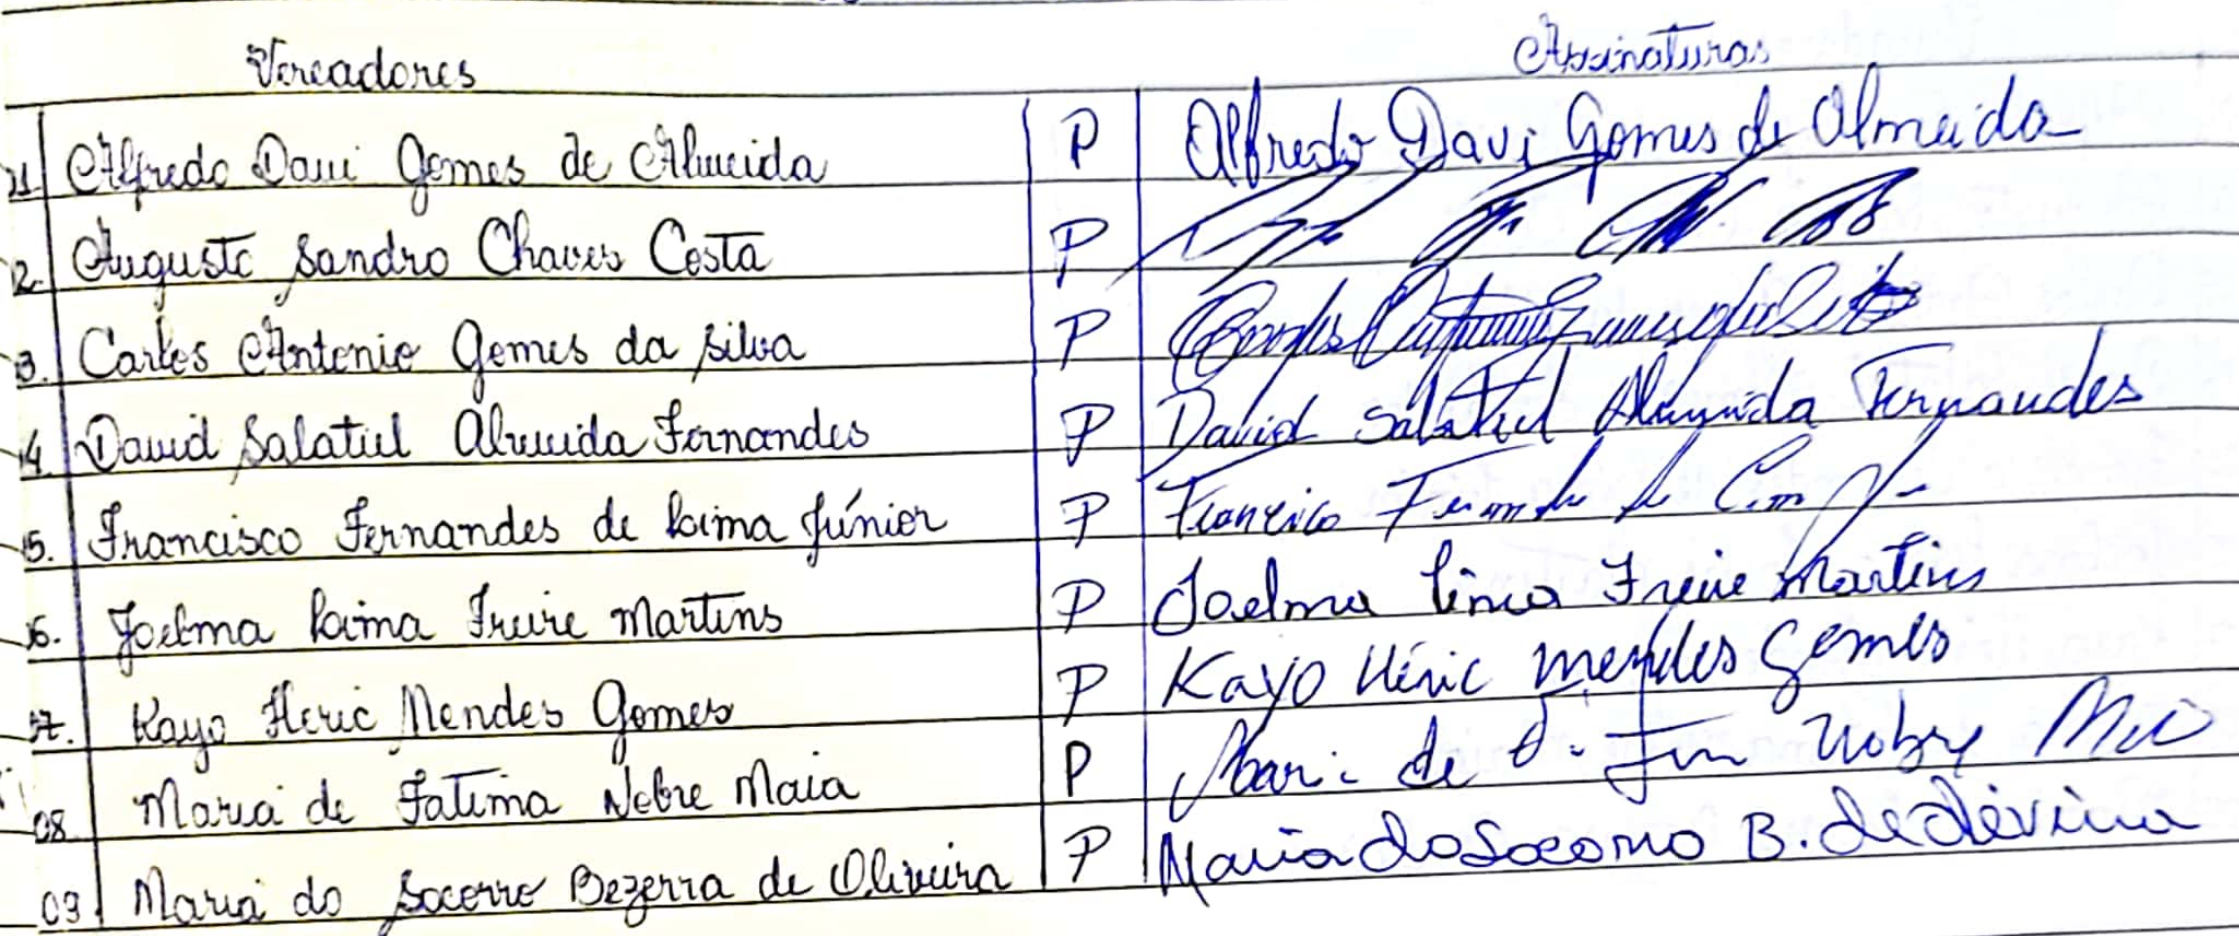 Vereadores Assinaturas
01. Alfredo Davi Gomes de Almeida P Alfredo Davi Gomes de Almeida
02. Augusto Sandro Chaves Costa P
03. Carlos Antonio Gomes da Silva P
04. David Salatiel Almeida Fernandes P David Salatiel Almeida Fernandes
05. Francisco Fernandes de Lima Júnior P Francisco Fernandes de
06. Joelma Lima Freire Martins P Joelma Lima Freire Martins
07. Kayo Heric Mendes Gomes P Kayo Héric Mendes Gomes
08 Maria de Fatima Nobre Maia P Maria de Nobre
09 Maria do Socorro Bezerra de Oliveira P Maria do Socorro B. de Oliveira